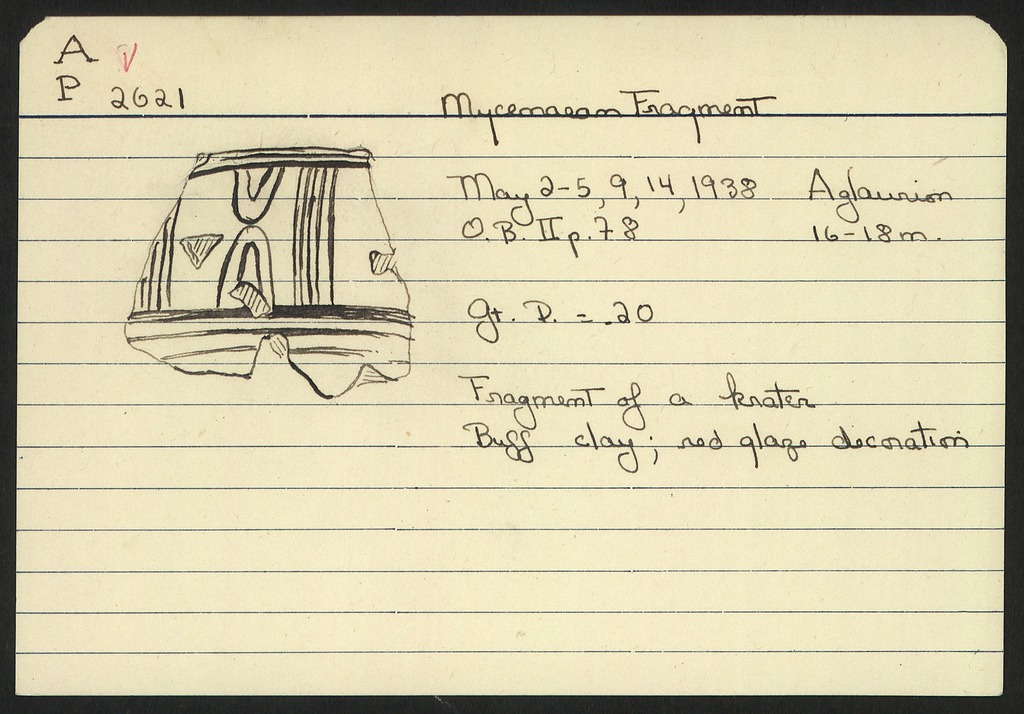 A
P 2621
Mycenaean Fragment
May 2-5, 9, 14, 1938 Aglaurion
O.B. II p. 78 16-18m.
Gr. D. = .20
Fragment of a krater
Buff clay; red glaze decoration